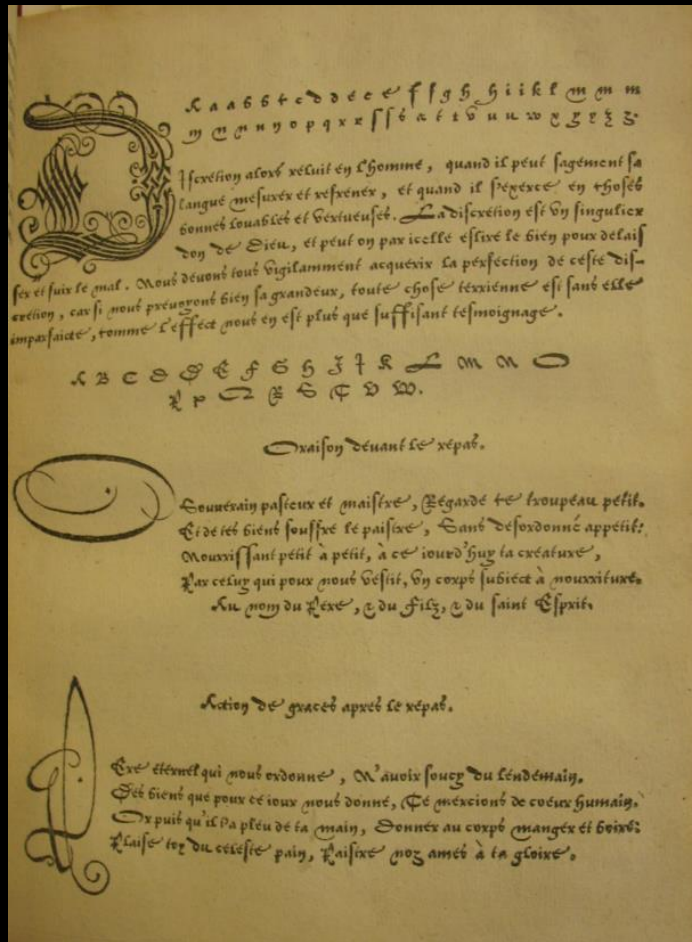 A a a b b t c d d e c e f f g h h i i k l m m m
m n n n y o p q x r ſ ſ s s a t t v u u w x y z z z.
DIscretion alors reluit en l'homme, quand il peut sagement sa
langue mesurer et refrener, et quand il s'exerce en choses
bonnes louables et vertueuses. La discretion est vn singulier
don de Dieu, et peut on par icelle eslire le bien pour delais
ser et fuir le mal. Nous deuons tous vigilamment acquerir la perfection de ceste dis-
cretion, car si nous preuoyons bien sa grandeur, toute chose terrienne est sans elle
imparfaicte, comme l'effect nous en est plus que suffisant tesmoignage.
A B C D D E F G H I J K L M N O
P P Q R S T V W.
Oraison deuant le repas.
O Souuerain pasteur et maistre, Regarde ce troupeau petit.
Et de tes biens souffre le paistre, Sans desordonné appetit:
Nourrissant petit à petit, à ce iourd'huy ta creature,
Par celuy qui pour nous vestit, vn corps subiect à nourriture.
Au nom du Pere, & du Filz, & du saint Esprit.
Action de graces apres le repas.
PEre éternel qui nous ordonne, N'auoir soucy du lendemain.
Des biens que pour ce iour nous donne, Te mercions de coeur humain.
Or puis qu'il t'a pleu de ta main, Donner au corps manger et boire:
Plaise toy du celeste pain, Paistre noz ames à ta gloire.